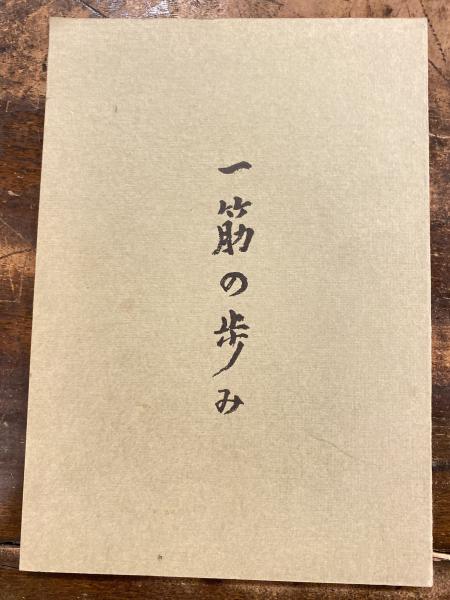 一筋の歩み